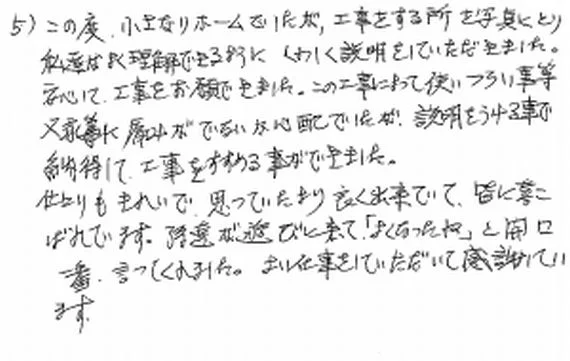 5) この度、小さなリホームでしたが、工事をする所を写真にとり
私達がよく理解できるように くわしく説明をしていただきました。
安心して、工事をお願いできました。この工事によって使いづらい事等
又家等に痛みがでないか心配でしたが、説明をうける事で
納得して、工事をすすめる事ができました。
仕上りもきれいで、思っていたより良く出来ていて、皆に喜こ
ばれています。友達が遊びに来て「よくなったね」と開口
一番、言ってくれました。よい仕事をしていただいて感謝してい
ます。